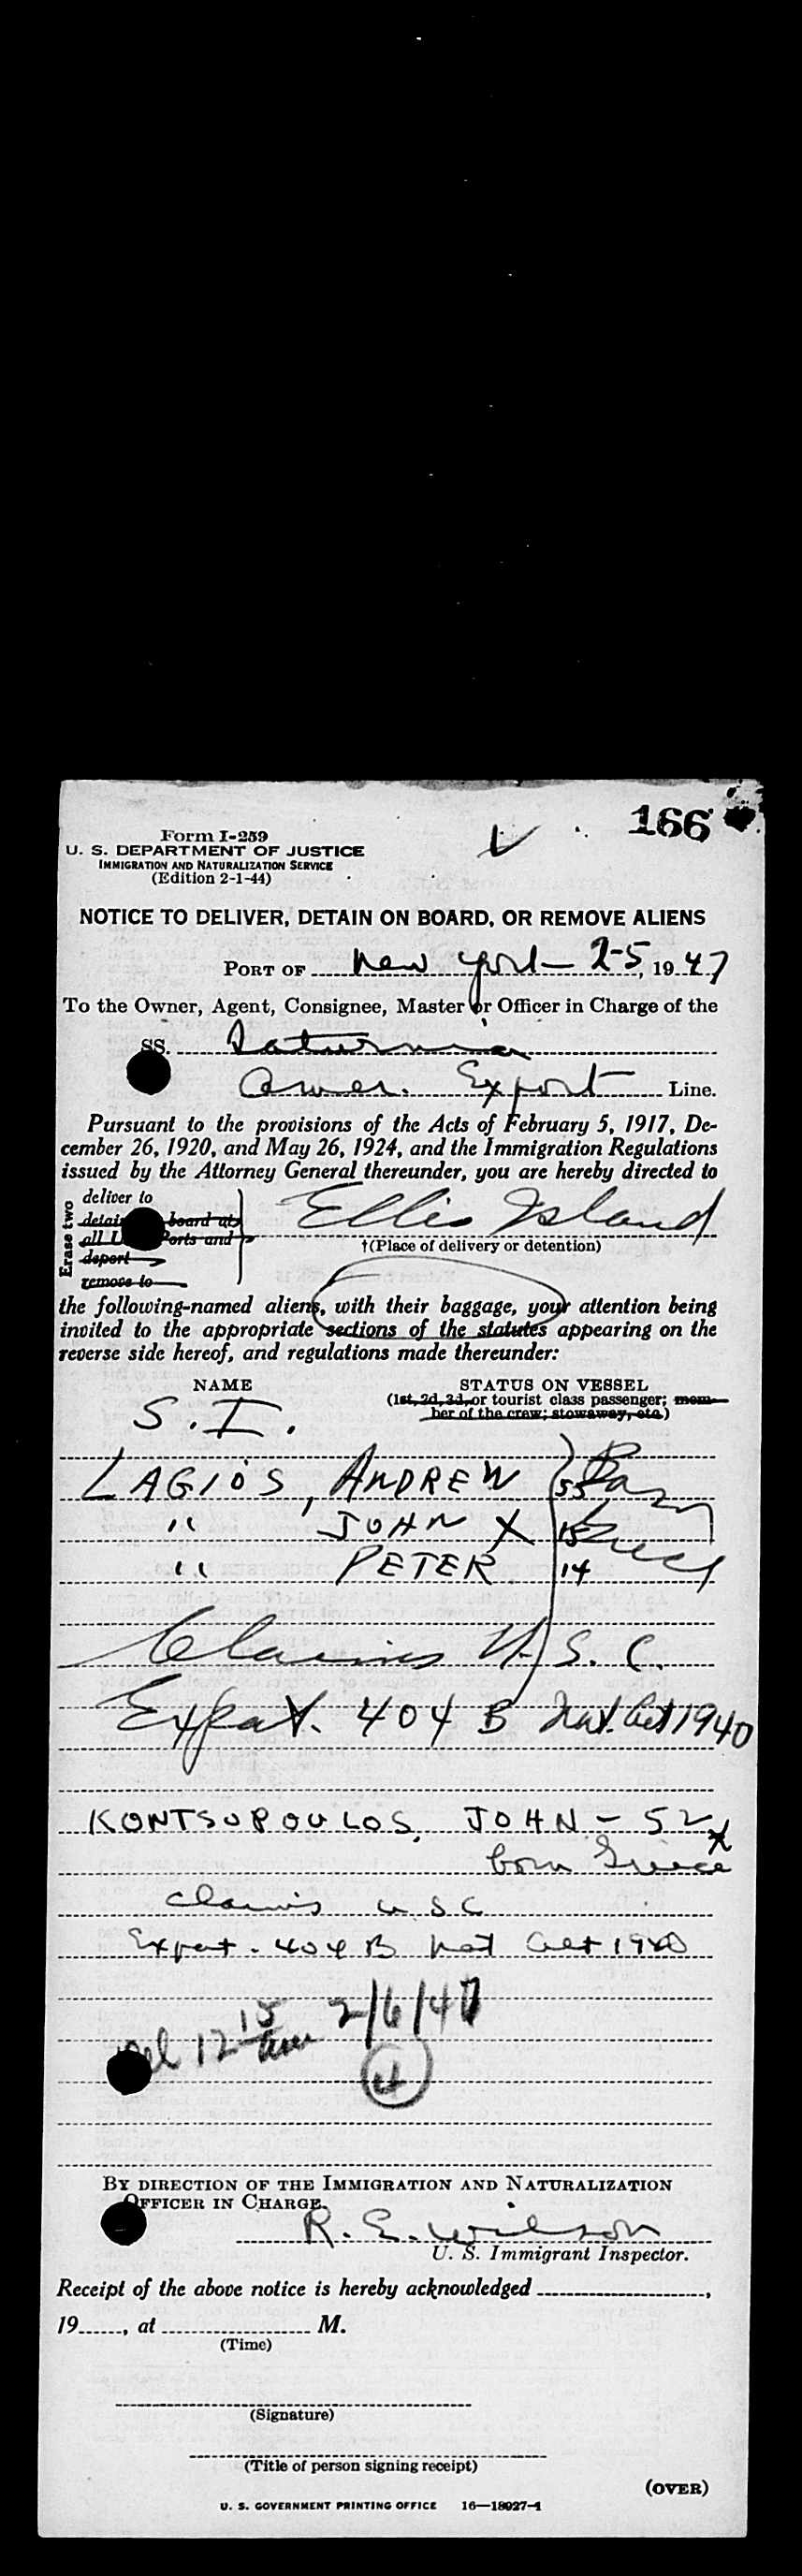 166
Form I-259
U. S. DEPARTMENT OF JUSTICE
IMMIGRATION AND NATURALIZATION SERVICE
(Edition 2-1-44)
NOTICE TO DELIVER, DETAIN ON BOARD, OR REMOVE ALIENS
PORT OF New York 2-5, 1947
To the Owner, Agent, Consignee, Master or Officer in Charge of the
SS. Saturnia
Amer. Export Line.
Pursuant to the provisions of the Acts of February 5, 1917, De-
cember 26, 1920, and May 26, 1924, and the Immigration Regulations
issued by the Attorney General thereunder, you are hereby directed to
Erase two
deliver to
detain board at
all Ports and
deport
remove to
Ellis Island
†(Place of delivery or detention)
the following-named aliens, with their baggage, your attention being
invited to the appropriate sections of the statutes appearing on the
reverse side hereof, and regulations made thereunder:
NAME STATUS ON VESSEL
(1st, 2d, 3d, or tourist class passenger; mem-
ber of the crew; stowaway, etc.)
S.I.
LAGIOS, ANDREW 55 Born
" JOHN X 15 Greece
" PETER 14
Claims U.S.C.
Expat. 404 B Nat. Act 1940
KONTSOPOULOS, JOHN - 52 X
born Greece
claims USC
Expat. 404 B Nat Act 1940
Del 12 15 am 2/6/47
BY DIRECTION OF THE IMMIGRATION AND NATURALIZATION
OFFICER IN CHARGE.
R. E. Wilson
U. S. Immigrant Inspector.
Receipt of the above notice is hereby acknowledged ,
19 , at M.
(Time)
(Signature)
(Title of person signing receipt)
(OVER)
U. S. GOVERNMENT PRINTING OFFICE 16—18027-1